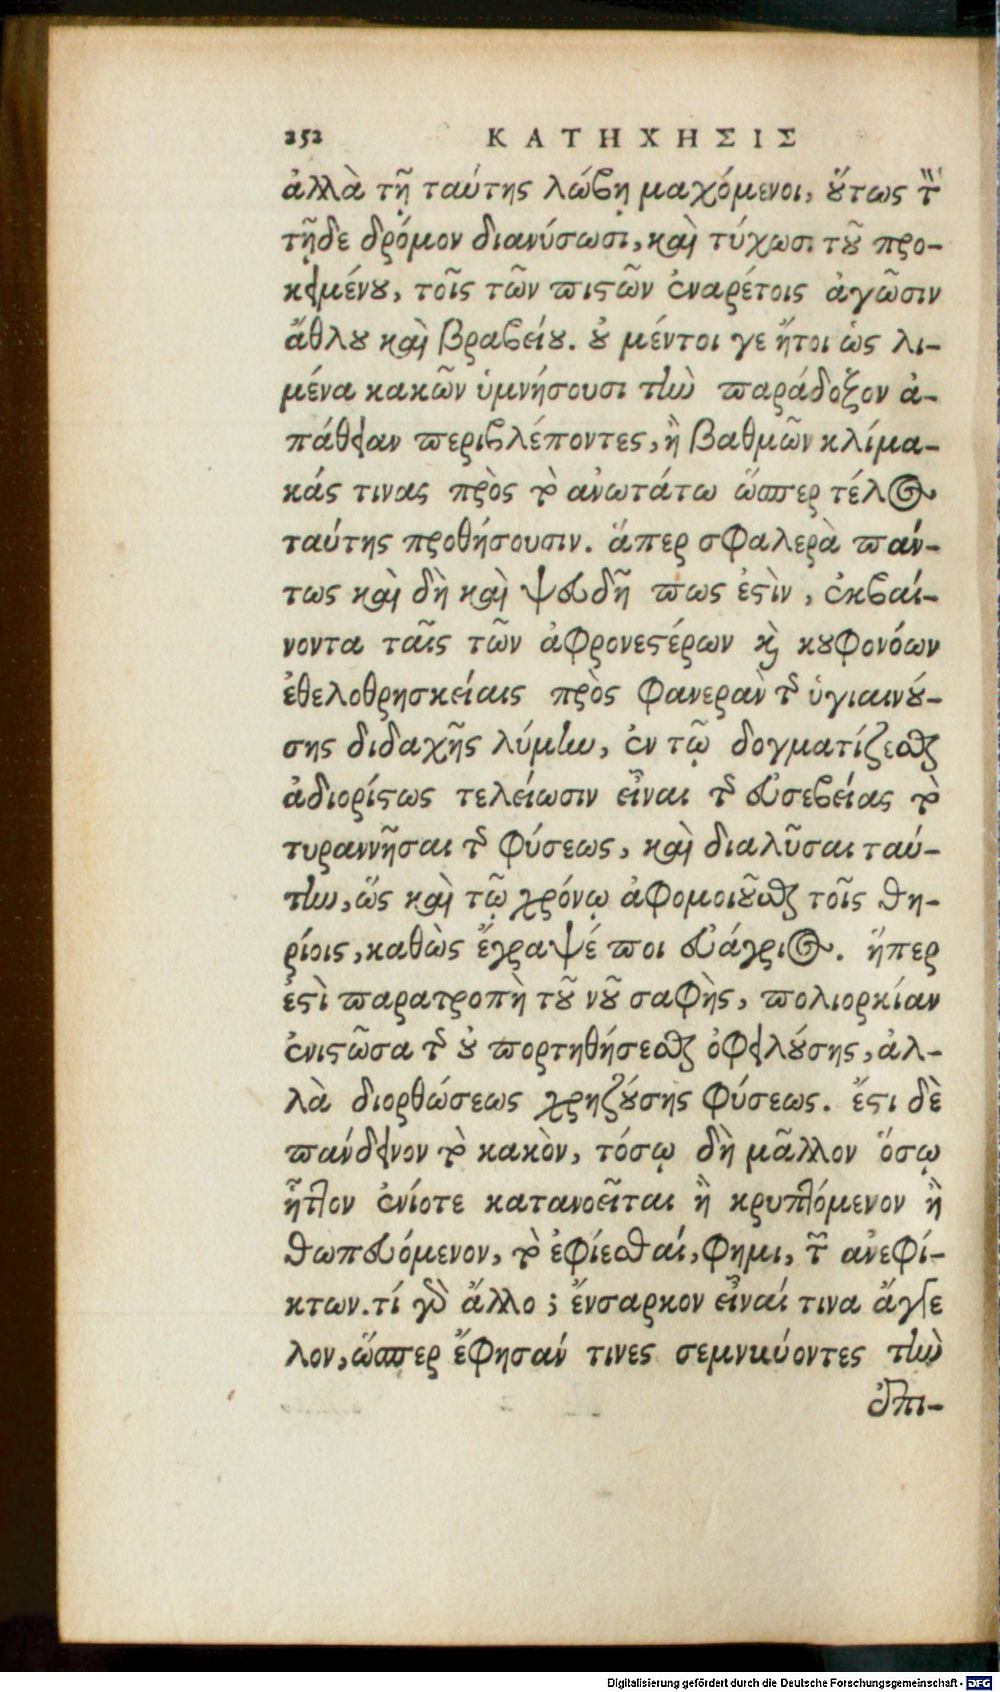 252 ΚΑΤΗΧΗΣΙΣ
ἀλλὰ τῇ ταύτης λώβῃ μαχόμενοι, οὕτως τὸν
τῇδε δρόμον διανύσωσι, καὶ τύχωσι τοῦ προ-
κειμένου, τοῖς τῶν πιστῶν ἐναρέτοις ἀγῶσιν
ἄθλου καὶ βραβείου. οὐ μέντοι γε ἤτοι ὡς λι-
μένα κακῶν ὑμνήσουσι τὴν παράδοξον ἀ-
πάθειαν περιβλέποντες, ἢ βαθμῶν κλίμα-
κάς τινας πρὸς τὸ ἀνωτάτω ὥσπερ τέλος
ταύτης προθήσουσιν. ἅπερ σφαλερὰ πάν-
τως καὶ δὴ καὶ ψευδῆ πως ἐστὶν, ἐκβαί-
νοντα ταῖς τῶν ἀφρονεστέρων καὶ κουφονόων
ἐθελοθρησκείαις πρὸς φανερὰν τῆς ὑγιαινού-
σης διδαχῆς λύμην, ἐν τῷ δογματίζεσθαι
ἀδιορίστως τελείωσιν εἶναι τῆς εὐσεβείας τὸ
τυραννῆσαι τῆς φύσεως, καὶ διαλῦσαι ταύ-
την, ὥς καὶ τῷ χρόνῳ ἀφομοιοῦσθαι τοῖς θη-
ρίοις, καθὼς ἔγραψέ ποι εὐάγριος. ἥπερ
ἐστὶ παρατροπὴ τοῦ νοῦ σαφὴς, πολιορκίαν
ἐνιστῶσα τῆς οὐ πορτηθήσεσθαι ὀφειλούσης, ἀλ-
λὰ διορθώσεως χρηζούσης φύσεως. ἔστι δὲ
πάνδεινον τὸ κακὸν, τόσῳ δὴ μᾶλλον ὅσῳ
ἧττον ἐνίοτε κατανοεῖται ἢ κρυπτόμενον ἢ
θωπευόμενον, τὸ ἐφίεσθαί, φημι, τῶν ἀνεφί-
κτων. τί γὰρ ἄλλο; ἔνσαρκον εἶναί τινα ἄγγε
λον, ὥσπερ ἔφησάν τινες σεμνύοντες τὴν
ἐπι-
Digitalisierung gefördert durch die Deutsche Forschungsgemeinschaft - DFG